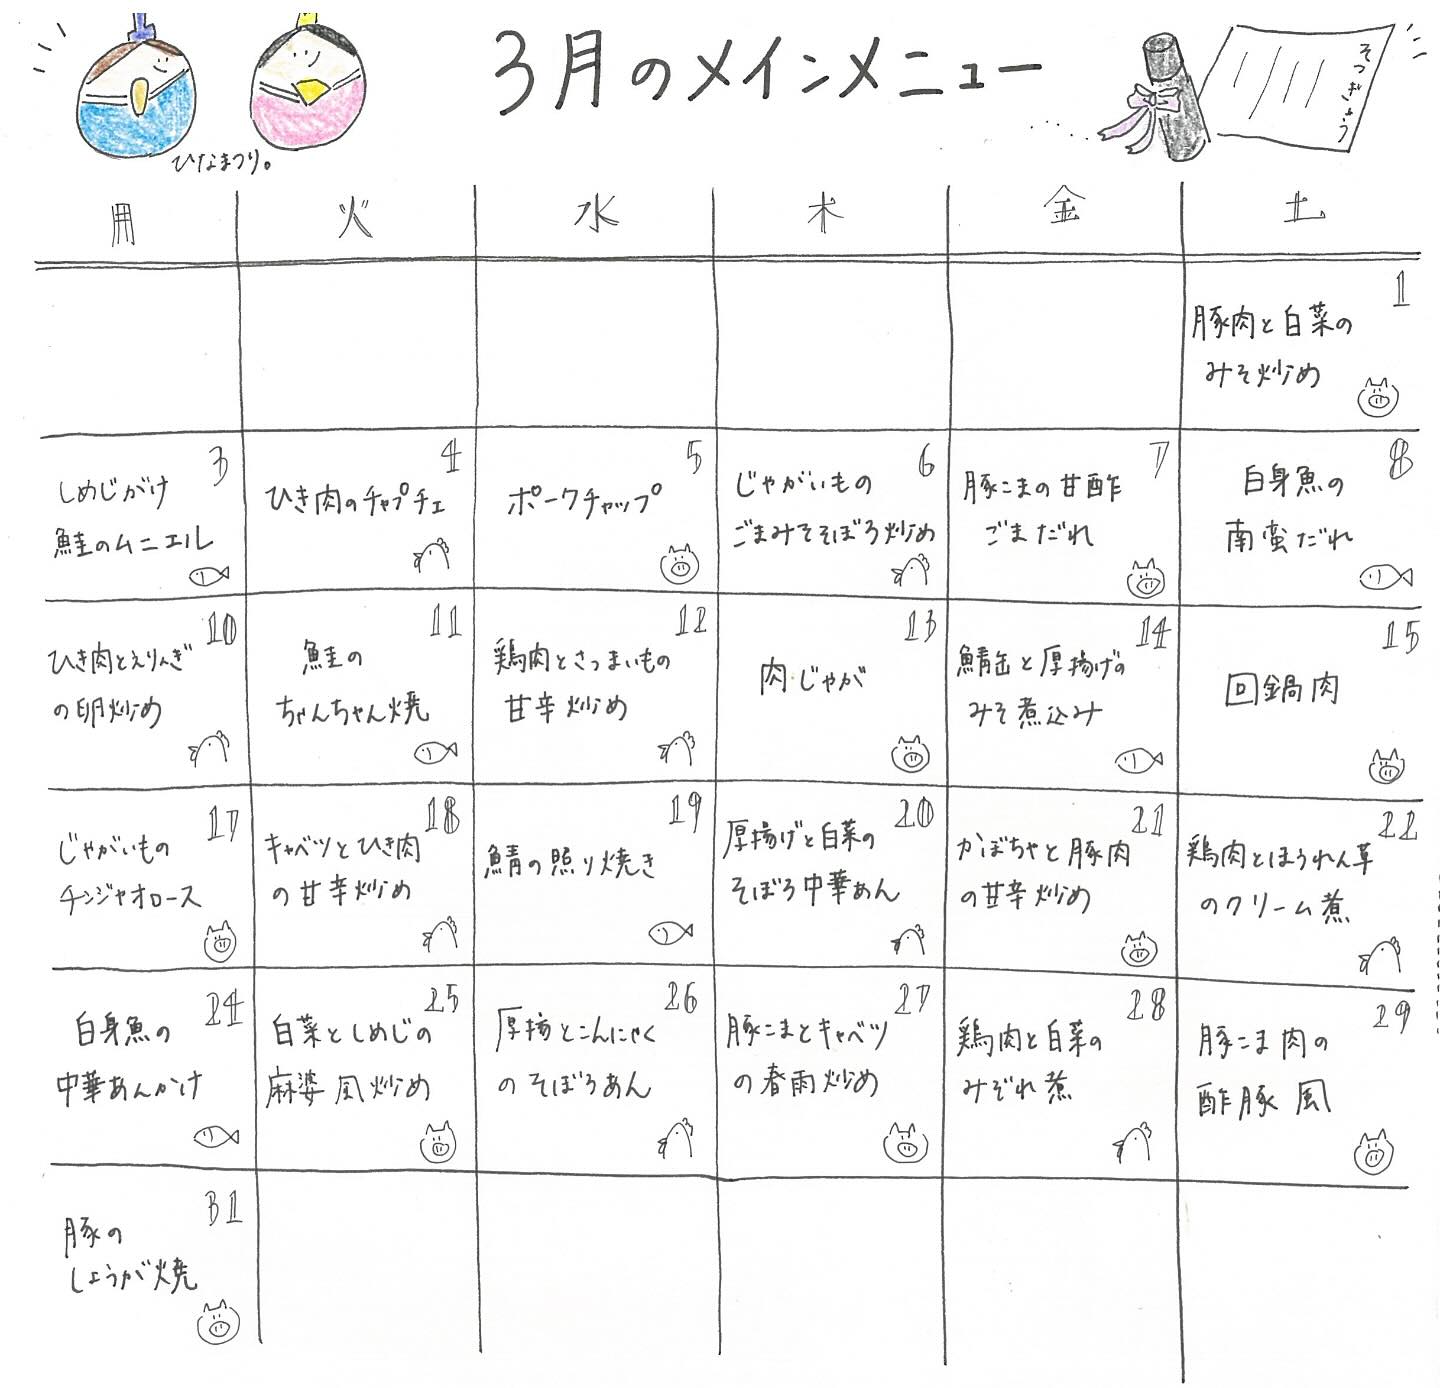 3月のメインメニュー
ひなまつり。
そつぎょう
月 火 水 木 金 土
1
豚肉と白菜の
みそ炒め
3
しめじがけ
鮭のムニエル
4
ひき肉のチャプチェ
5
ポークチャップ
6
じゃがいもの
ごまみそそぼろ炒め
7
豚こまの甘酢
ごまだれ
8
白身魚の
南蛮だれ
10
ひき肉とえりんぎ
の卵炒め
11
鮭の
ちゃんちゃん焼
12
鶏肉とさつまいもの
甘辛炒め
13
肉じゃが
14
鯖缶と厚揚げの
みそ煮込み
15
回鍋肉
17
じゃがいもの
チンジャオロース
18
キャベツとひき肉
の甘辛炒め
19
鯖の照り焼き
20
厚揚げと白菜の
そぼろ中華あん
21
かぼちゃと豚肉
の甘辛炒め
22
鶏肉とほうれん草
のクリーム煮
24
白身魚の
中華あんかけ
25
白菜としめじの
麻婆風炒め
26
厚揚とこんにゃく
のそぼろあん
27
豚こまとキャベツ
の春雨炒め
28
鶏肉と白菜の
みぞれ煮
29
豚こま肉の
酢豚風
31
豚の
しょうが焼